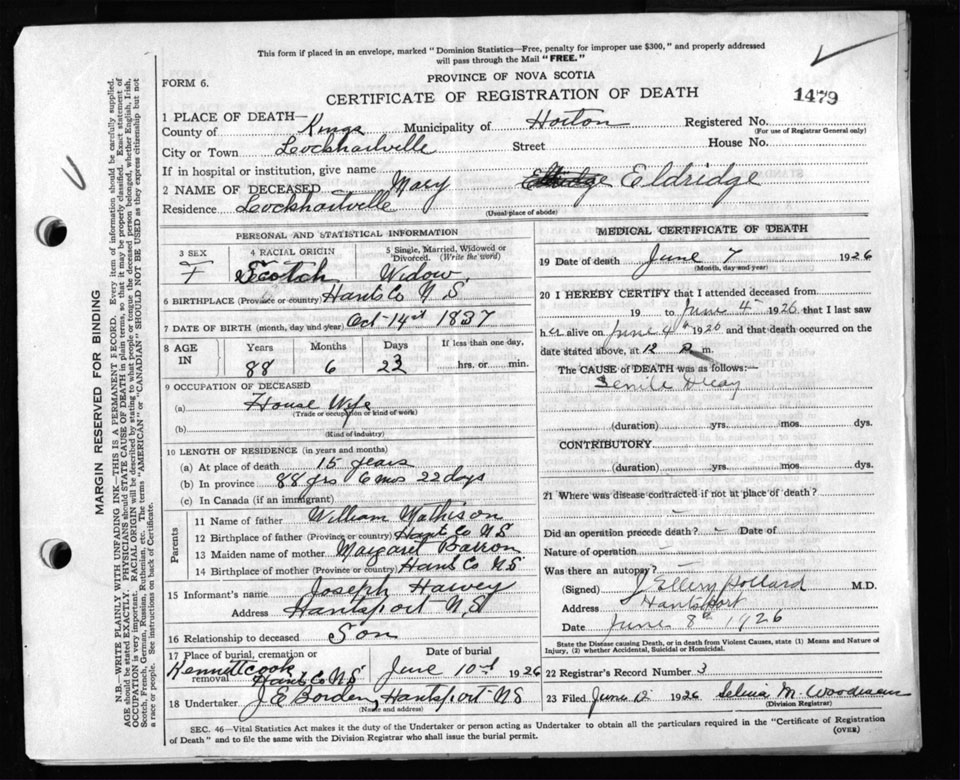 This form if placed in an envelope, marked "Dominion Statistics—Free, penalty for improper use $300," and properly addressed
will pass through the Mail "FREE."
PROVINCE OF NOVA SCOTIA
FORM 6.
CERTIFICATE OF REGISTRATION OF DEATH
1479
1 PLACE OF DEATH—
County of Kings Municipality of Horton Registered No.
(For use of Registrar General only)
City or Town Lockhartville Street House No.
If in hospital or institution, give name
2 NAME OF DECEASED Mary Eldridge
Residence Lockhartville (Usual place of abode)
PERSONAL AND STATISTICAL INFORMATION
3 SEX 4 RACIAL ORIGIN 5 Single, Married, Widowed or Divorced. (Write the word)
F Scotch Widow
6 BIRTHPLACE (Province or country) Hants Co N S
7 DATE OF BIRTH (month, day and year) Oct 14th 1837
8 AGE IN Years Months Days If less than one day,
88 6 23 hrs. or min.
9 OCCUPATION OF DECEASED
(a) House Wife
(Trade or occupation or kind of work)
(b)
(Kind of industry)
10 LENGTH OF RESIDENCE (in years and months)
(a) At place of death 15 years
(b) In province 88 yrs 6 mos 22 days
(c) In Canada (if an immigrant)
Parents
11 Name of father William Mathison
12 Birthplace of father (Province or country) Hants Co N S
13 Maiden name of mother Margaret Barron
14 Birthplace of mother (Province or country) Hants Co N S
15 Informant's name Joseph Harvey
Address Hantsport N.S
16 Relationship to deceased Son
17 Place of burial, cremation or removal Date of burial
Kennetcook Hants Co N S June 10th 1926
18 Undertaker J. E Borden, Hantsport N S
(Name and address)
MEDICAL CERTIFICATE OF DEATH
19 Date of death June 7 1926
(Month, day and year)
20 I HEREBY CERTIFY that I attended deceased from
19 to June 4th 1926 that I last saw
her alive on June 4th 1926 and that death occurred on
date stated above, at 12 m.
The CAUSE of DEATH was as follows:—
Senile Decay
(duration) yrs. mos. dys.
CONTRIBUTORY
(duration) yrs. mos. dys.
21 Where was disease contracted if not at place of death?
Did an operation precede death? - Date of
Nature of operation
Was there an autopsy?
(Signed) J Ellery Pollard M.D.
Address Hantsport
Date June 8th 1926
State the Disease causing Death, or in death from Violent Causes, state (1) Means and Nature of
Injury, (2) whether Accidental, Suicidal or Homicidal.
22 Registrar's Record Number 3
23 Filed June 1926 M.
(Division Registrar)
SEC. 46—Vital Statistics Act makes it the duty of the Undertaker or person acting as Undertaker to obtain all the particulars required in the "Certificate of Registration
of Death" and to file the same with the Division Registrar who shall issue the burial permit.
(OVER)
MARGIN RESERVED FOR BINDING
N.B.—WRITE PLAINLY WITH UNFADING INK—THIS IS A PERMANENT RECORD. Every item of information should be carefully supplied.
AGE should be stated EXACTLY. PHYSICIANS should STATE CAUSE OF DEATH in plain terms, so that it may be properly classified. Exact statement of
OCCUPATION is very important. RACIAL ORIGIN will be described by stating to what people or tongue the deceased person belonged, whether English, Irish,
Scotch, French, German, Russian, Ruthenian, etc. The terms "AMERICAN" or "CANADIAN" SHOULD NOT BE USED as they express citizenship but not
a race or people. See instructions on back of Certificate.